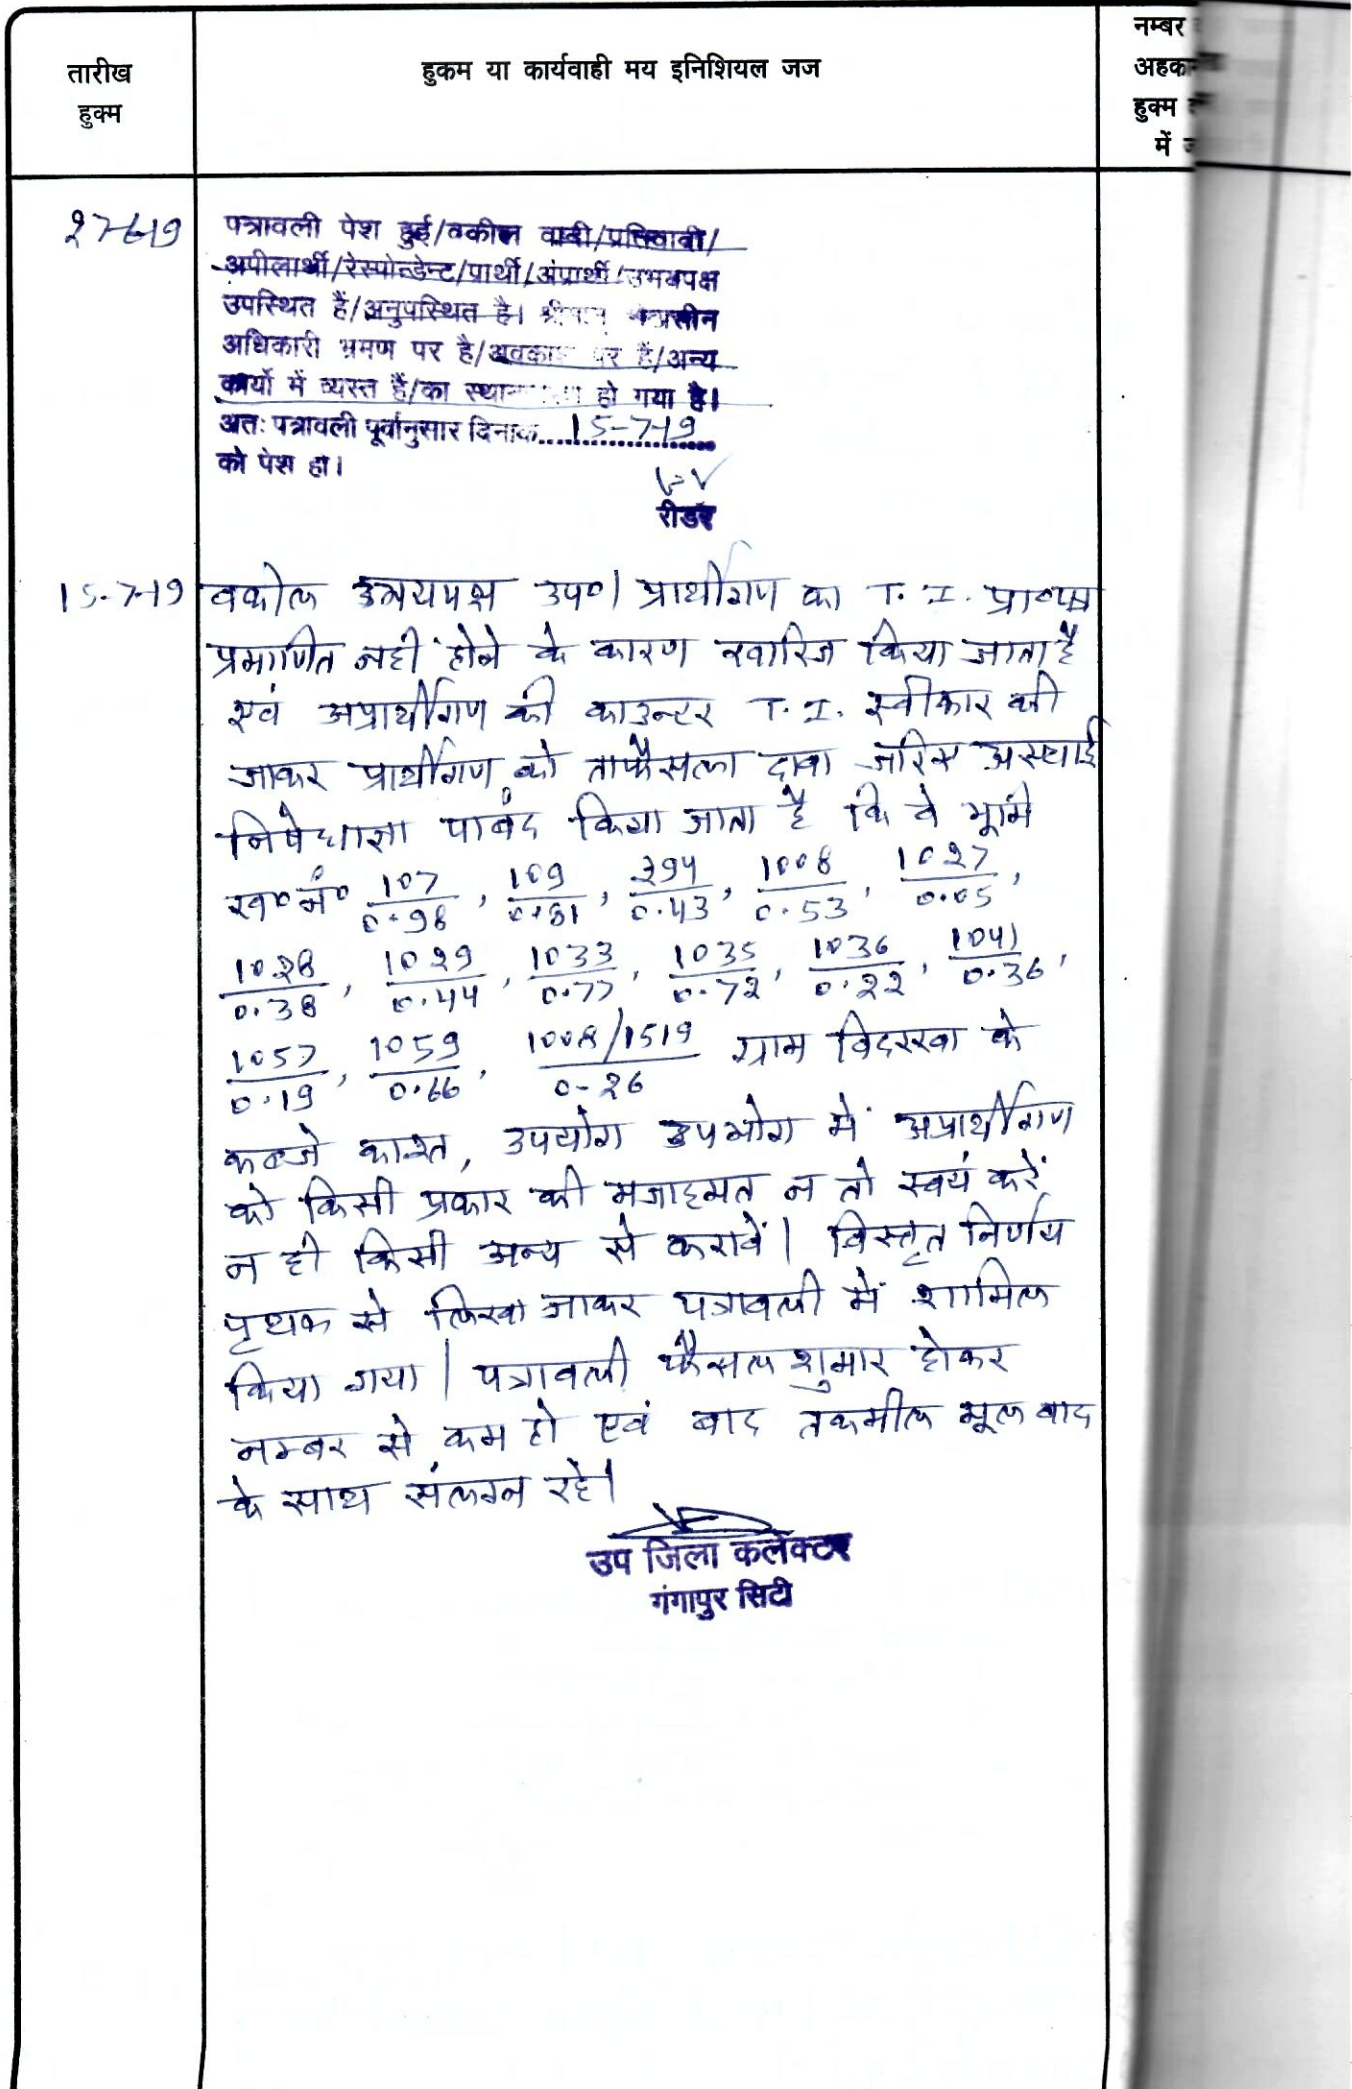 तारीख
हुक्म
हुकम या कार्यवाही मय इनिशियल जज
नम्बर
अहका
हुक्म
में
27-6-19
पत्रावली पेश हुई/वकील वादी/प्रतिवादी/
अपीलार्थी/रेस्पोन्डेन्ट/प्रार्थी/अप्रार्थी/उभयपक्ष
उपस्थित हैं/अनुपस्थित है। श्रीमान्
अधिकारी भ्रमण पर है/अवकाश पर है/अन्य
कार्यो में व्यस्त हैं/का हो गया है।
अतः पत्रावली पूर्वानुसार दिनांक 15-7-19
को पेश हो।
रीडर
15-7-19 वकील उभयपक्ष उप०। प्रार्थीगण का T. I. प्रा०पत्र
प्रमाणित नहीं होने के कारण खारिज किया जाता है
एवं अप्रार्थीगण की काउन्टर T. I. स्वीकार की
जाकर प्रार्थीगण को ताफैसला दावा जरिए अस्थाई
निषेधाज्ञा पाबंद किया जाता है कि वे भूमि
ख०नं० 107/0.98, 109/0.81, 394/0.43, 1008/0.53, 1027/0.05,
1028/0.38, 1029/0.44, 1033/0.77, 1035/0.72, 1036/0.22, 1041/0.36,
1057/0.19, 1059/0.66, 1008/1519/0-26 ग्राम बिदरखा के
कब्जे काश्त, उपयोग उपभोग में अप्रार्थीगण
को किसी प्रकार की मजाहमत न तो स्वयं करें
न ही किसी अन्य से करावें। विस्तृत निर्णय
पृथक से लिखा जाकर पत्रावली में शामिल
किया गया। पत्रावली फैसल शुमार होकर
नम्बर से कम हो एवं बाद तकमील मूल वाद
के साथ संलग्न रहे।
उप जिला कलेक्टर
गंगापुर सिटी